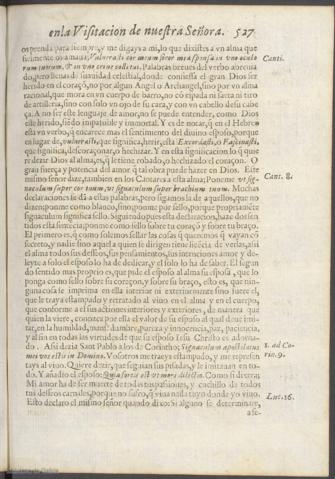 en la Visitacion de nuestra Señora. 527
os prenda para siempre, y me digays a mi, lo que dixistes a vn alma que
fielmente os amaua; Vulnerasti cor meum soror mea sponsa in vno oculo Canti.
rum tuorum, & in vno crine colli tui. Palabras breues del verbo abreuia
do, pero llenas de suauidad celestial, donde confiessa el gran Dios ser
herido en el coraçõ, no por algun Angel o Archangel, sino por vn alma
racional, que mora en vn cuerpo de barro, no cõ espada ni saeta ni tiro
de artilleria, sino con solo vn ojo de su cara, y con vn cabello de su cabe
ça. A no ser este lenguaje de amor, no se puede entender, como Dios
este herido, siẽdo impassible y immortal. Y es de notar, q̃ en el Hebreo
està vn verbo, q̃ encarece mas el sentimiento del diuino esposo, porque
en lugar de, vulnerasti, que significa, herir, està Excordasti, o Fascinasti,
que significa, descoraçonar, o hechizar. Y en esta significacion, lo q̃ quie
re dezir Dios al alma, es, q̃ le tiene robado, o hechizado el coraçon. O
gran fuerça y potencia del amor q̃ tal obra puede hazer en Dios. Este
mismo señor dize, tambien en los Cantares a esta alma; Poneme vt sig- Cant. 8.
naculum super cor tuum, vt signaculum super brachium tuum. Muchas
declaraciones se dã a estas palabras, pero sigamos la de aquellos, que no
dizen ponme como blanco, sino ponme por sello, porque propriamẽte
signaculum significa sello. Siguiendo pues esta declaracion, haze dos sen
tidos esta sentẽcia, ponme como sello sobre tu coraçõ y sobre tu braço.
El primero es, q̃ como solemos sellar las cosas q̃ queremos q̃ vayan cõ
secreto, y nadie sino aquel a quien se dirigen tiene licẽcia de verlas, assi
el alma todos sus desseos, sus pensamientos, sus intenciones amor y de-
leyte a solo el esposo lo ha de dedicar, y el solo lo ha de saber. El segun
do sentido mas proprio es, que pide el esposo al alma su esposa, que lo
ponga como sello sobre su coraçon, y sobre su braço, esto es, que nin-
guna cosa se imprima en ella interior ni exteriormente sino fuere el,
que le traya estampado y retratado al viuo en el alma y en el cuerpo,
que conforme a el sus actiones interiores y exteriores, de manera que
quien la viere, conozca por ella el valor de su esposo al qual deue imi-
tar, en la humildad, mansedumbre, pureza y innocencia, paz, paciencia,
y assi en todas las virtudes de que su esposo Iesu Christo es adorna-
do. Assi dezia Sant Pablo a los de Corintho; Signaculum apostolatus 1. ad Co-
mei vos estis in Domino. Vosotros me traeys estampado, y me represen rin. 9.
tays al viuo. Quiere dezir, que seguian sus pisadas, y le imitauan en to-
do. Y añadio el esposo: Quia fortis est vt mors dilectio. Como si dixera;
Mi amor ha de ser muerte de todas tus passiones, y cuchillo de todos
tus desseos carnales, porque no sufro, q̃ viua nada tuyo donde yo viuo.
Esto declaro el mismo señor quando dixo: Si alguno se determinare, Luc. 16.
a se-